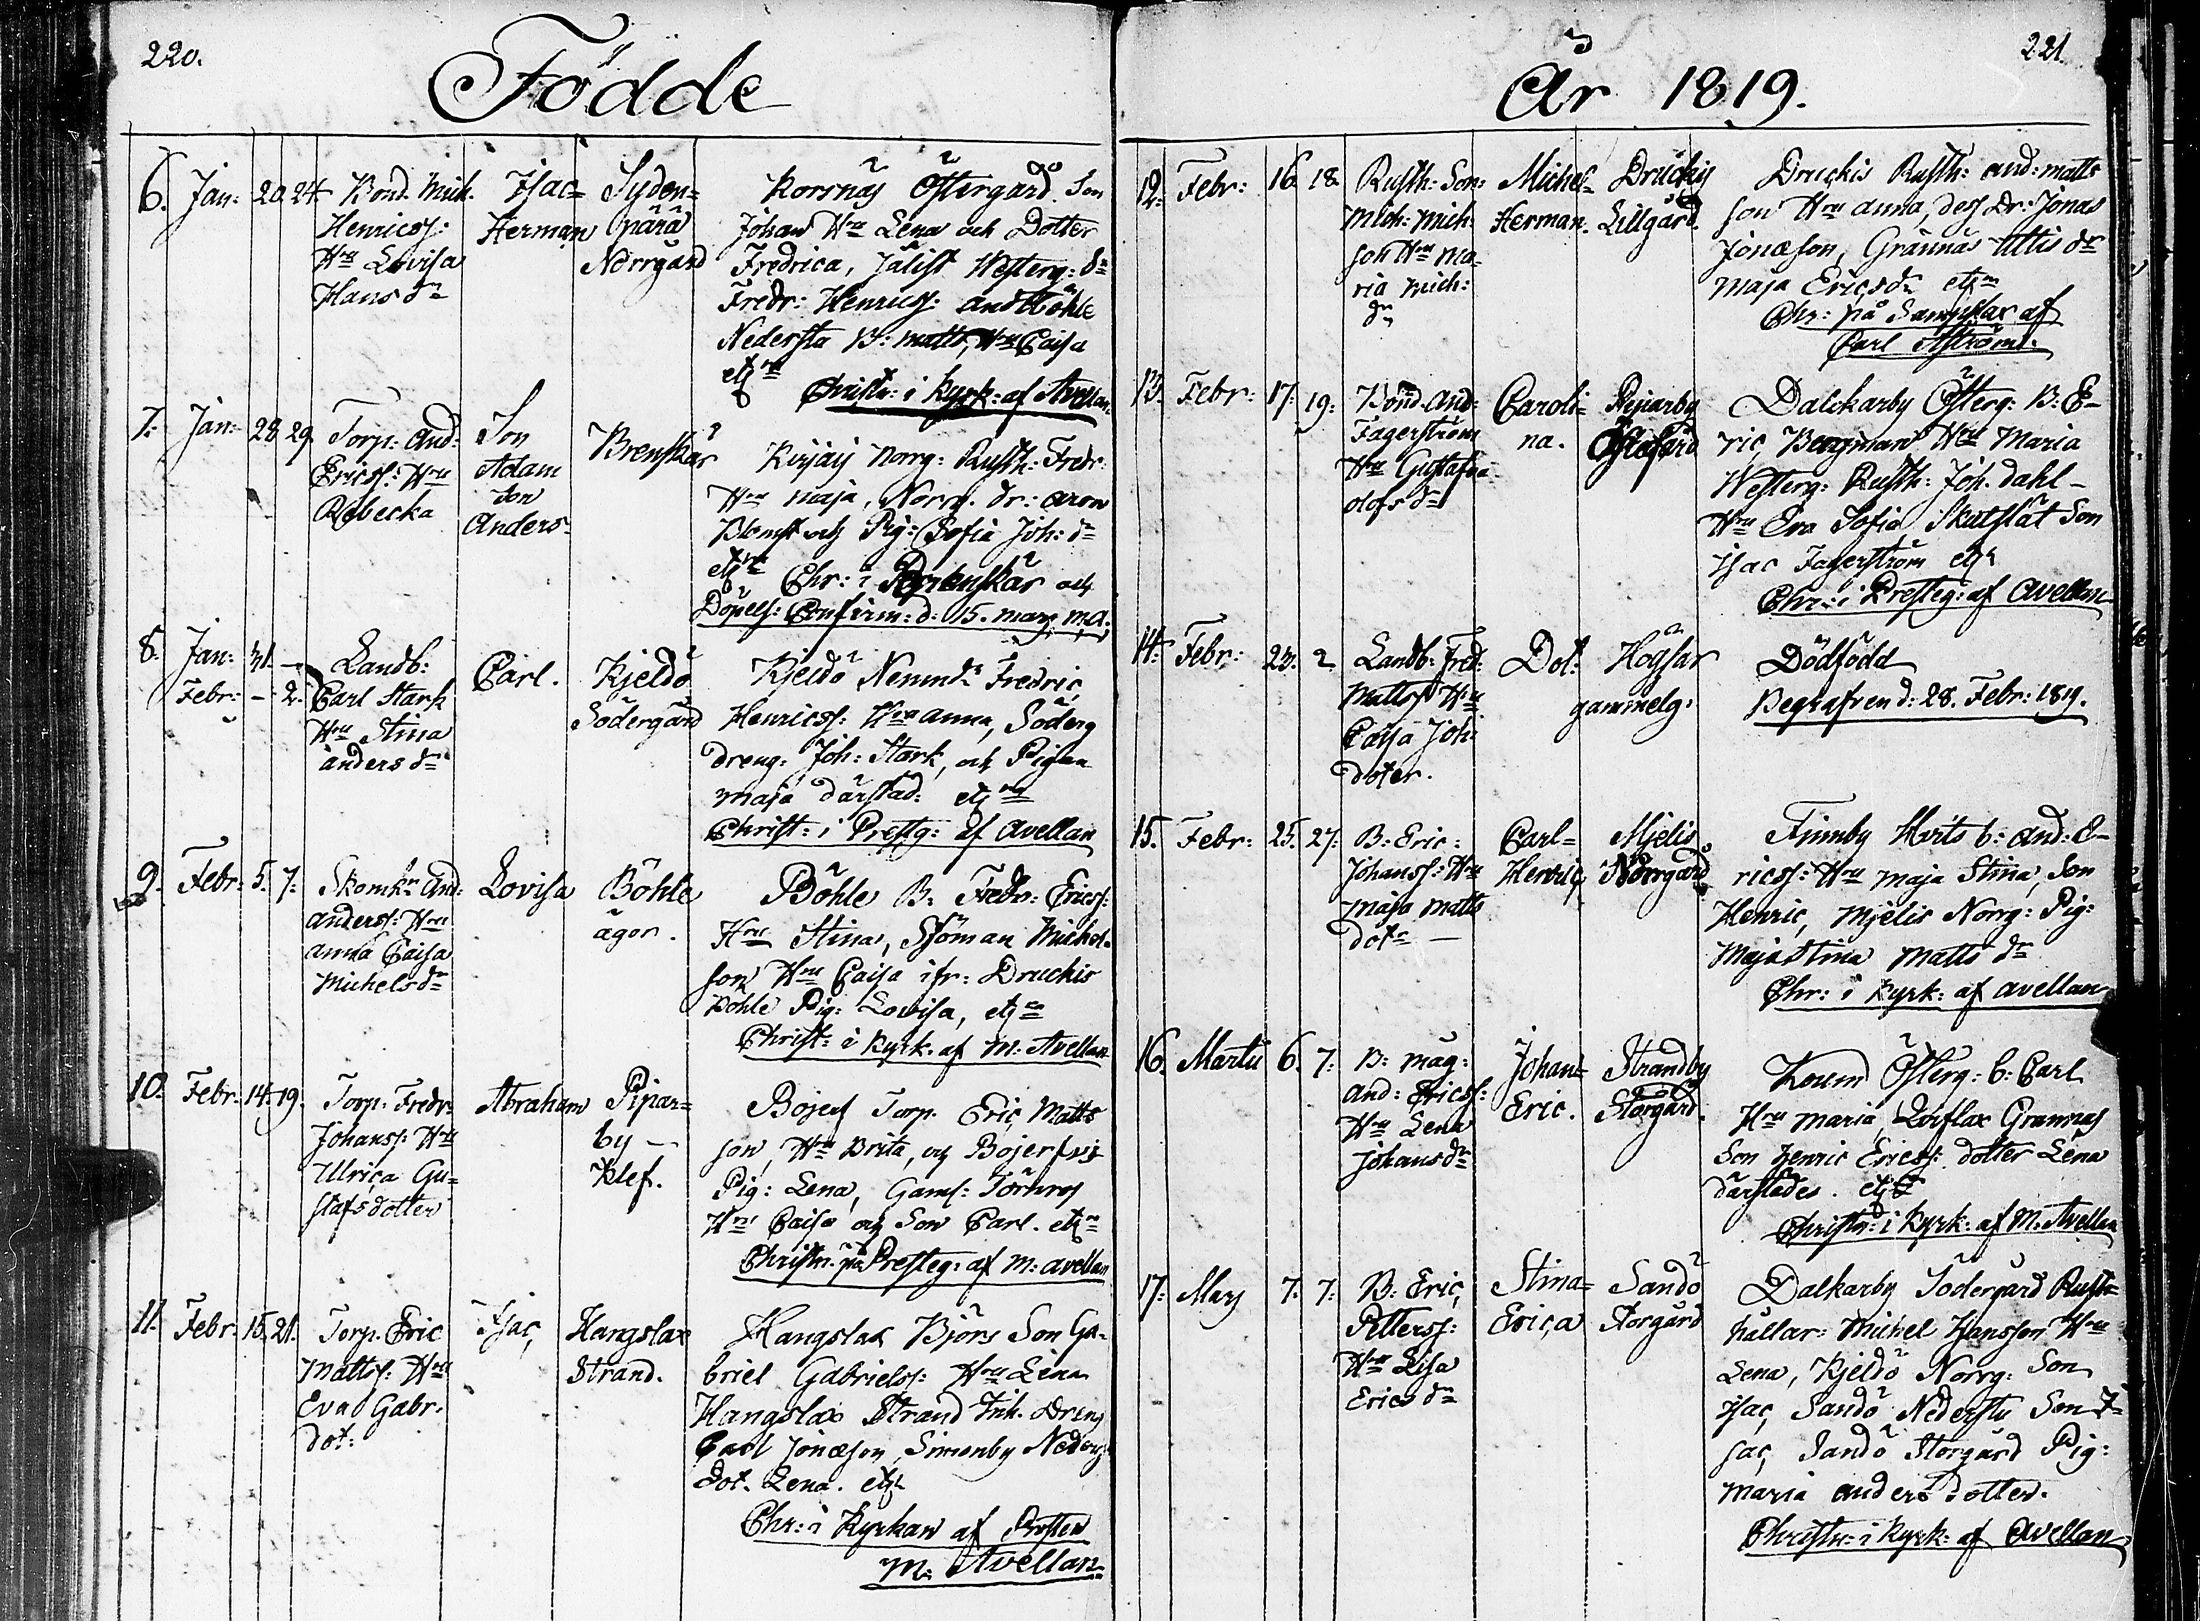 220.
Födde
6. Jan: 20. 24. Bond. Mich. Henricss: Hru Lovisa Hans dr
Isac= Herman
Syden= pärä Norrgård
Korsnäs Östergård Son
Johan Hru Lena och Dotter
Fredrica, Jälist Westerg: dr
Fredr: Henricss: and Böhle
Nedersta B: Matts, Hru Caisa
etc
Christn: i Kyrk: af Avellan
7. Jan: 28 29. Torp: And: Ericss: Hru Rebecka
Son Adam son Anders.
Brenskär
Norrg: Rusth: Fredr:
Hru Maja, Norrg. dr: Aron
och Pig: Sofia Joh: dr
etc Chr: i Brenskär och
Döpels: Confirm: d: 15. Mars M.A.
8. Jan: 31. — Febr: — 2. Landb: Carl Stark Hru Stina Anders dr
Carl.
Kjeldö Södergård
Kjeldö Nemnd: Fredric
Henricss: Hru Anna, Söderg
dreng: Joh: Stark, och Pigan
Maja därstad: etc
Christ: i Prestg: af Avellan
9. Febr: 5. 7. And: Anderss: Hru Anna Caisa Michelsdr
Lovisa
Böhle ägor.
Böhle B. Fredr: Ericss:
Hru Stina, Sjöman Michel-
son Hru Caisa ifr: Druckis
Böhle Pig: Lovisa, etc
Christ: i Kyrk. af M: Avellan
10. Febr: 14. 19. Torp. Fredr: Johanss: Hru Ulrica Gu= stafsdotter
Abraham
Pipar= by — Klef.
Bojers Torp. Eric Matts
son, Hru Brita, och
Pig: Lena, Gaml: Törnros
Hru Caisa och Son Carl. etc
Christn: på Presteg: af M: Avellan
11. Febr: 15. 21. Torp. Eric Mattss: Hru Eva Gabr. dot:
Isac
Hangslax Strand.
Hangslax Björs Son Ga-
briel Gabrielss: Hru Lena
Hangslax Strand Inh. Dreng
Carl Jonæson, Simonby Nederg:
Dot. Lena. etc
Chr: i Kyrkan af Prosten
M: Avellan
År 1819.
221.
12. Febr: 16. 18. Rusth: Son: Mich: Mich: son Hru Ma- ria Mich: dr
Michel= Herman.
Druckis Lillgård
Druckis Rusth: And: Matts
son Hru Anna, des Dr: Jonas
Jonæson, Grännäs Uttis dr
Maja Ericsdr etc
Chr: på Sampslax af
Carl
13. Febr: 17. 19. Bond. And: Fagerström Hru Gustafva Olofs dr
Caroli- na.
Piparby
Dalckarby Österg: B: E-
ric Bergman Hru Maria
Westerg: Rusth: Joh. Dahl-
Hru Eva Sofia Skutslät Son
Isac Fagerström etc
Chr: i Presteg: af Avellan
14. Febr: 23. 2. Landb: Fred: Mattss Hru Caisa Joh: doter.
Dot:
Högsar gammelg:
Dödfödd
Begrafven d: 28. Febr: 1819.
15. Febr: 25. 27. B: Eric: Johanss: Hru Maja Matts dotr —
Carl= Henric
Mjelis Norrgård
Finnby Mårts b: And: E-
ricss: Hru Maja Stina, Son
Henric, Mjelis Norrg: Pig:
Maja Stina Matts dr
Chr: i Kyrk: af Avellan
16. Martii 6. 7. B: Mag: And: Ericss: Hru Lena Johansdr
Johan= Eric.
Strandby Storgård.
Österg: b: Carl
Hru Maria, Grannas
Son Henric Ericss: dotter Lena
därstädes. etc
Christn: i Kyrk: af M. Avellan
17. Mars 7. 7. B: Eric Petterss: Hru Lisa Erics dr
Stina= Erica
Sandö Storgård
Dalkarby Södergård Rust-
hållar: Michel Hansson Hru
Lena, Kjeldö Norrg: Son
Isac, Sandö Nedersta Son I-
sac, Sandö Storgård Pig:
Maria Anders dotter.
Christn: i Kyrk: af Avellan